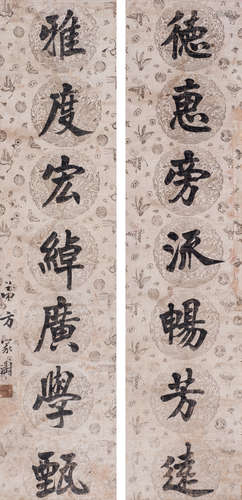 德惠旁派暢芳
雅度宏綽廣學甄
方